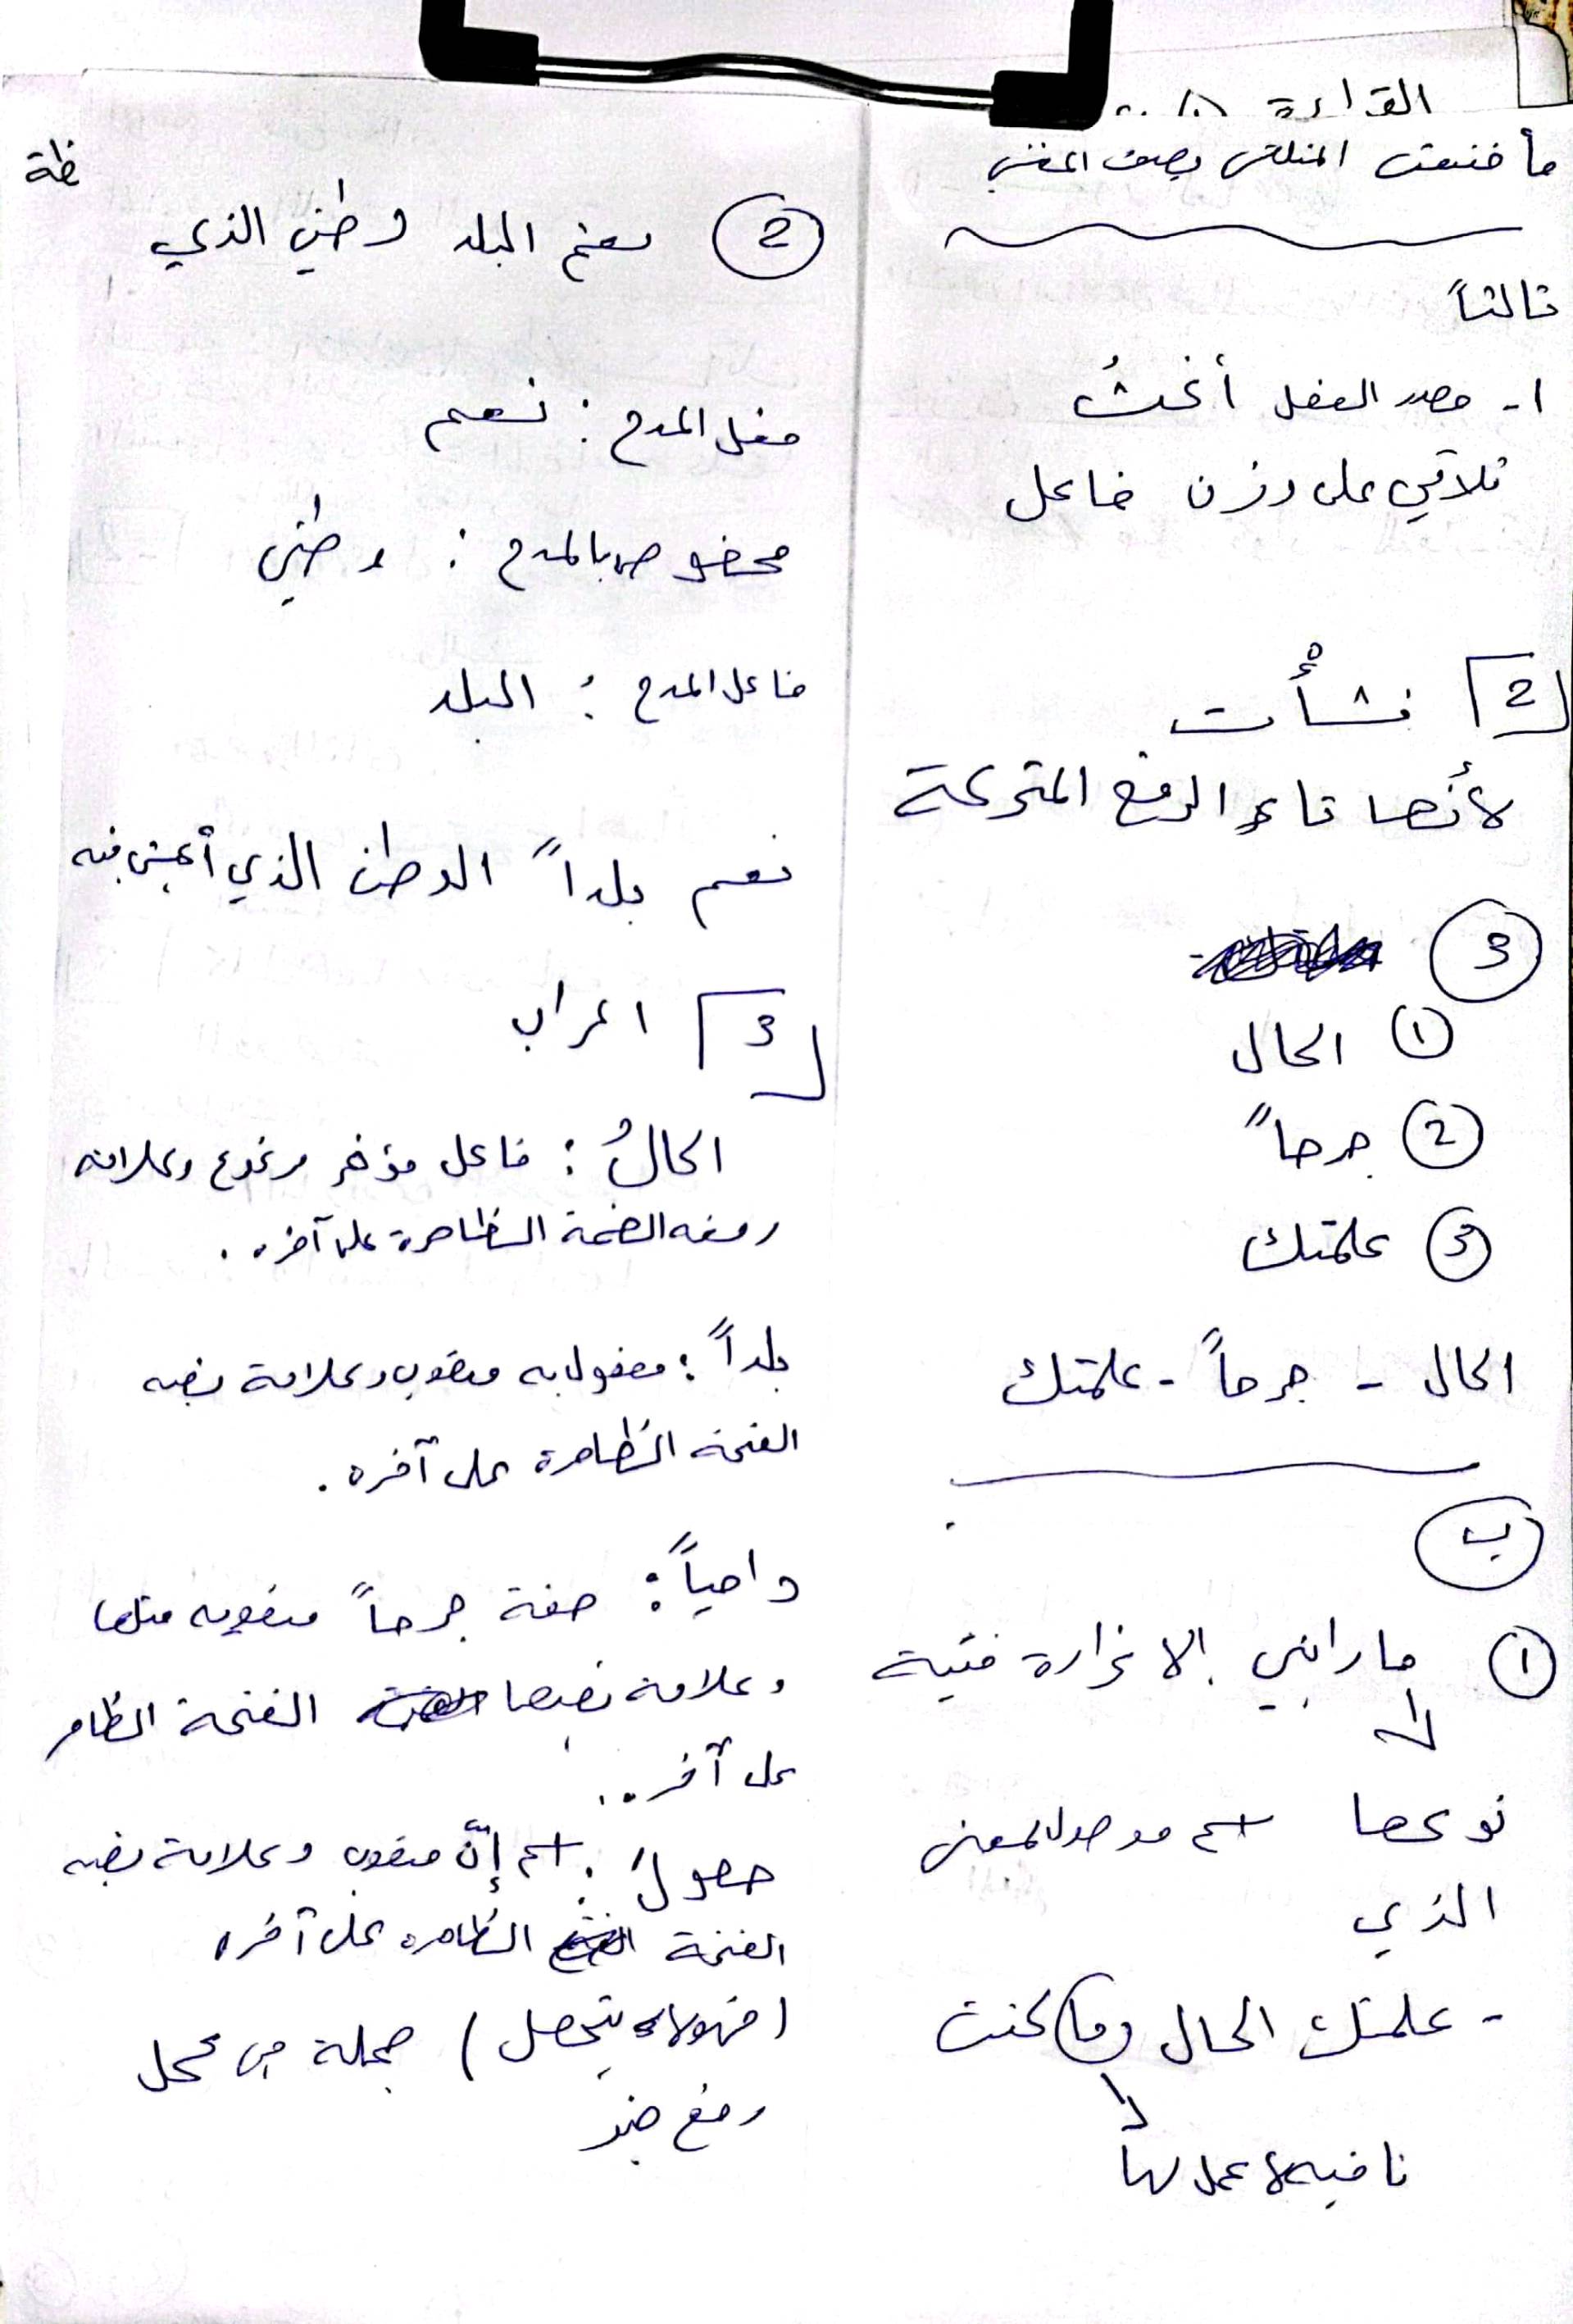 القراءة
ثالثاً
١- مصدر الفعل أغثتُ
ثلاثي على وزن فاعل
2 نشأْت
لأنها تاء الرفع المتحركة
3
١ الحال
2 جرحاً
3 علمتك
الحال - جرحاً - علمتك
ب
١ ما رابني إلا غرارة فتية
نوعها اسم موصول بمعنى
الذي
- علمتك الحال وما كنت
نافية لا عمل لها
2 نعم البلد وطني الذي
فعل المدح : نعم
مخصوص بالمدح : وطني
فاعل المدح : البلد
نعم بلداً الوطن الذي أعيش فيه
3 اعراب
الحالُ : فاعل مؤخر مرفوع وعلامة
رفعه الضمة الظاهرة على آخره .
بلداً : مفعول به منصوب وعلامة نصبه
الفتحة الظاهرة على آخره .
صفة جرحاً منصوبه مثلها
وعلامة نصبها الفتحة الظاهر
على آخر..
اسم إنّ منصوب وعلامة نصبه
الفتحة الظاهره على آخره
جملة في محل
رفع خبر